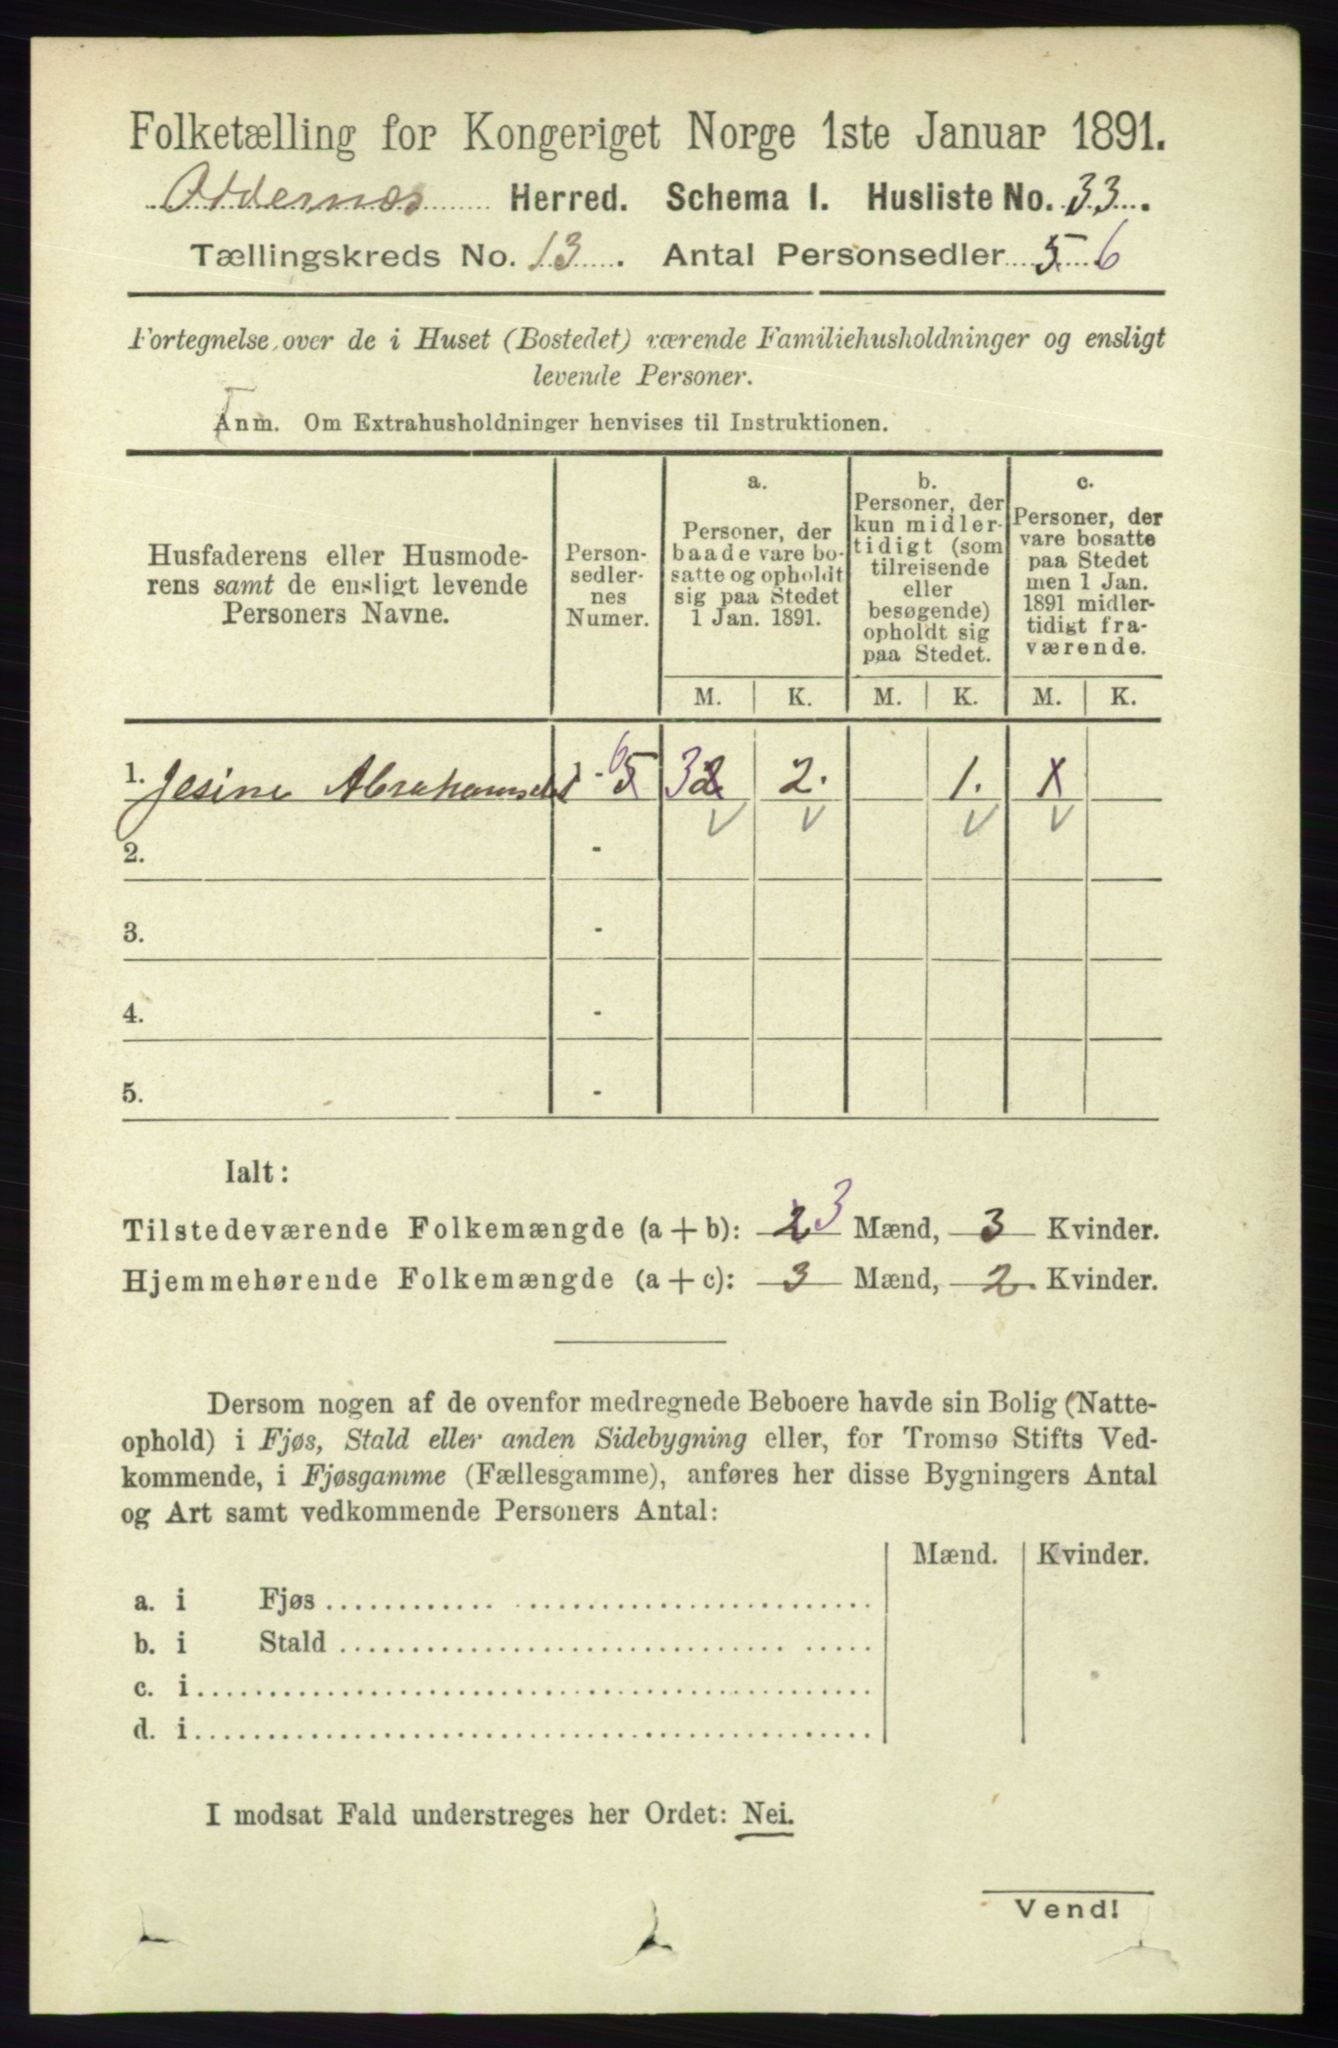 Folketælling for Kongeriget Norge 1ste Januar 1891.
Oddernæs Herred. Schema I. Husliste No. 33.
Tællingskreds No. 13. Antal Personsedler 5 6
Fortegnelse over de i Huset (Bostedet) værende Familiehusholdninger og ensligt
levende Personer.
Anm. Om Extrahusholdninger henvises til Instruktionen.
Husfaderens eller Husmode-
rens samt de ensligt levende
Personers Navne.
Person-
sedler-
nes
Numer.
a.
Personer, der
baade vare bo-
satte og opholdt
sig paa Stedet
1 Jan. 1891.
b.
Personer, der
kun midler-
tidigt (som
tilreisende
eller
besøgende)
opholdt sig
paa Stedet.
c.
Personer, der
vare bosatte
paa Stedet
men 1 Jan.
1891 midler-
tidigt fra-
værende.
M. K. M. K. M. K.
1. Jesine Abrahamsdt 1 - 5 6 3 2 2. 1. 1
2. -
3. -
4. -
5. -
Ialt:
Tilstedeværende Folkemængde (a + b): 2 3 Mænd, 3 Kvinder.
Hjemmehørende Folkemængde (a + c): 3 Mænd, 2 Kvinder.
Dersom nogen af de ovenfor medregnede Beboere havde sin Bolig (Natte-
ophold) i Fjøs, Stald eller anden Sidebygning eller, for Tromsø Stifts Ved-
kommende, i Fjøsgamme (Fællesgamme), anføres her disse Bygningers Antal
og Art samt vedkommende Personers Antal:
Mænd. Kvinder.
a. i Fjøs
b. i Stald
c. i
d. i
I modsat Fald understreges her Ordet: Nei.
Vend!